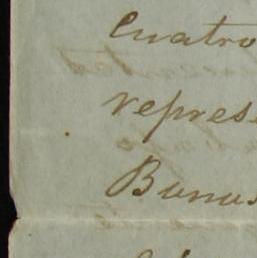 Cuatro
represe
Bunus